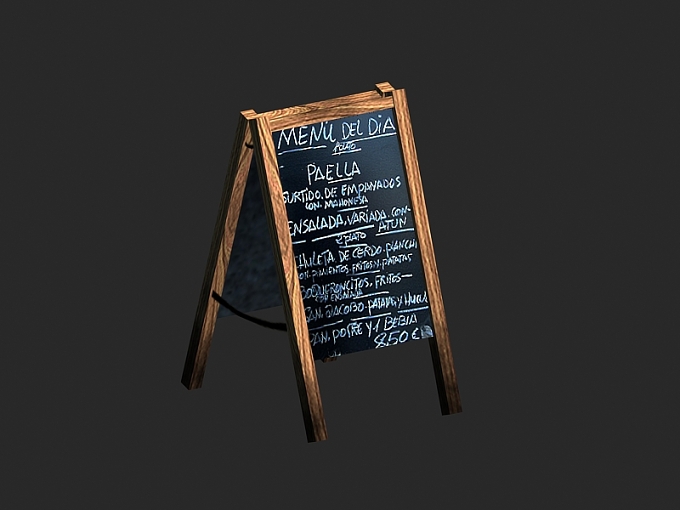 MENÚ DEL DÍA
PLATO
PAELLA
SURTIDO DE EMPANADOS
CON MAHONESA
ENSALADA, VARIADA. CON-
ATUN
2 PLATO
CHULETA DE CERDO. PLANCHA
CON PIMIENTOS FRITOS Y PATATAS
BOQUERONCITOS, FRITOS-
CON ENSALADA
SAN JACOBO. PATATAS, Y HUEVO
PAN, POSTRE Y 1 BEBIDA
8.50 €